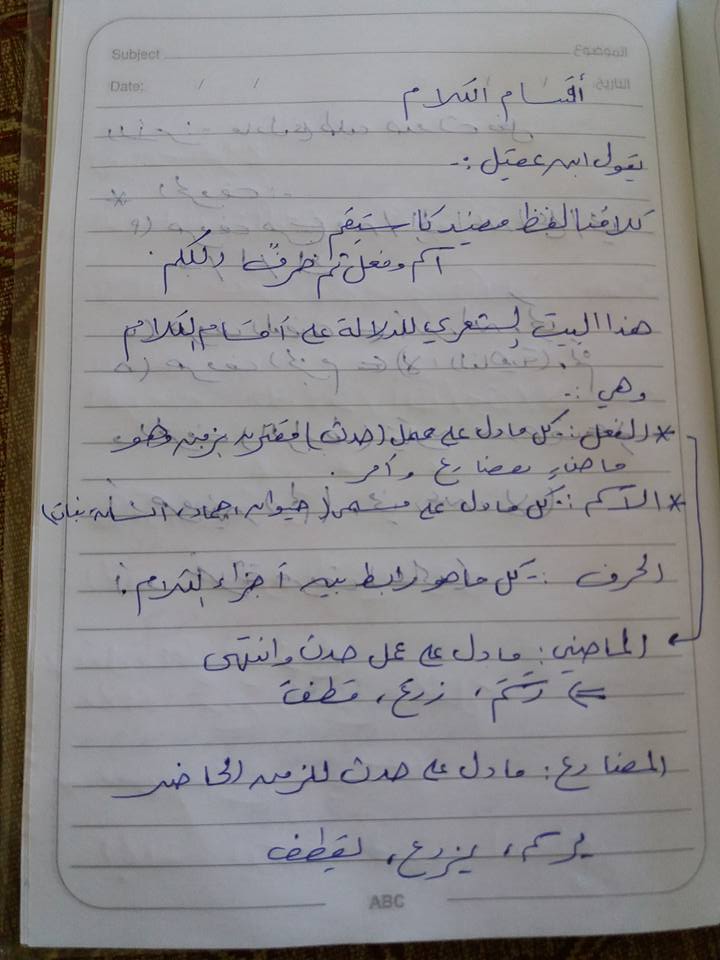 Subject الموضوع
Date: / / التاريخ
أقسام الكلام
يقول ابن عقيل :-
كلامنا لفظ مفيد كاستقم
اسم وفعل ثم حرف الكلم .
هذا البيت الشعري للدلالة على أقسام الكلام
وهي :-
* الفعل :- كل مادل على عمل (حدث) مقترن بزمن وهو
ماضٍ مضارع وأمر .
* الاسم :- كل مادل على مسمى (حيوان، جماد، انسان، نبات)
الحرف :- كل ماهو رابط بين أجزاء الكلام .
الماضي : مادل على عمل حدث وانتهى
رسم ، زرع ، قطف
المضارع : مادل على حدث للزمن الحاضر
يرسم ، يزرع ، يقطف
ABC